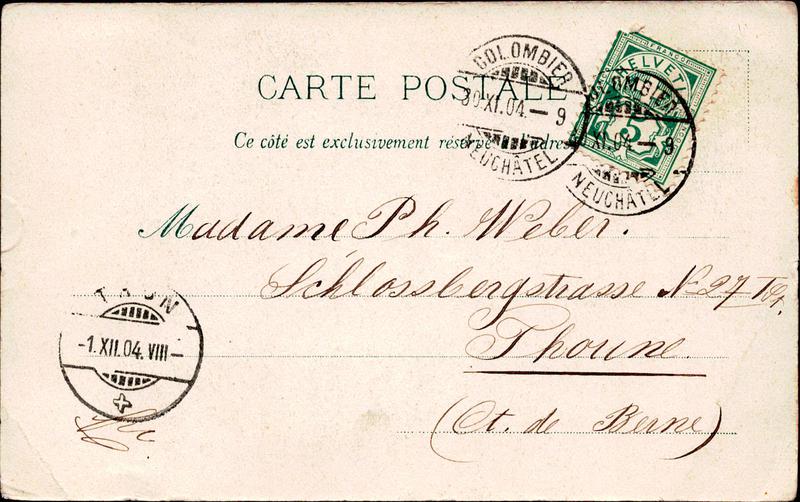 CARTE POSTALE
Ce côté est exclusivement réservé à l'adresse
COLOMBIER
30.XI.04.–9
NEUCHÂTEL
FRANCO
HELVETIA
5
COLOMBIER
XI.04.–9
NEUCHÂTEL
Madame Ph. Weber.
Schlossbergstrasse No 27
Thoune.
(Ct. de Berne)
THUN
-1.XII.04.VIII–